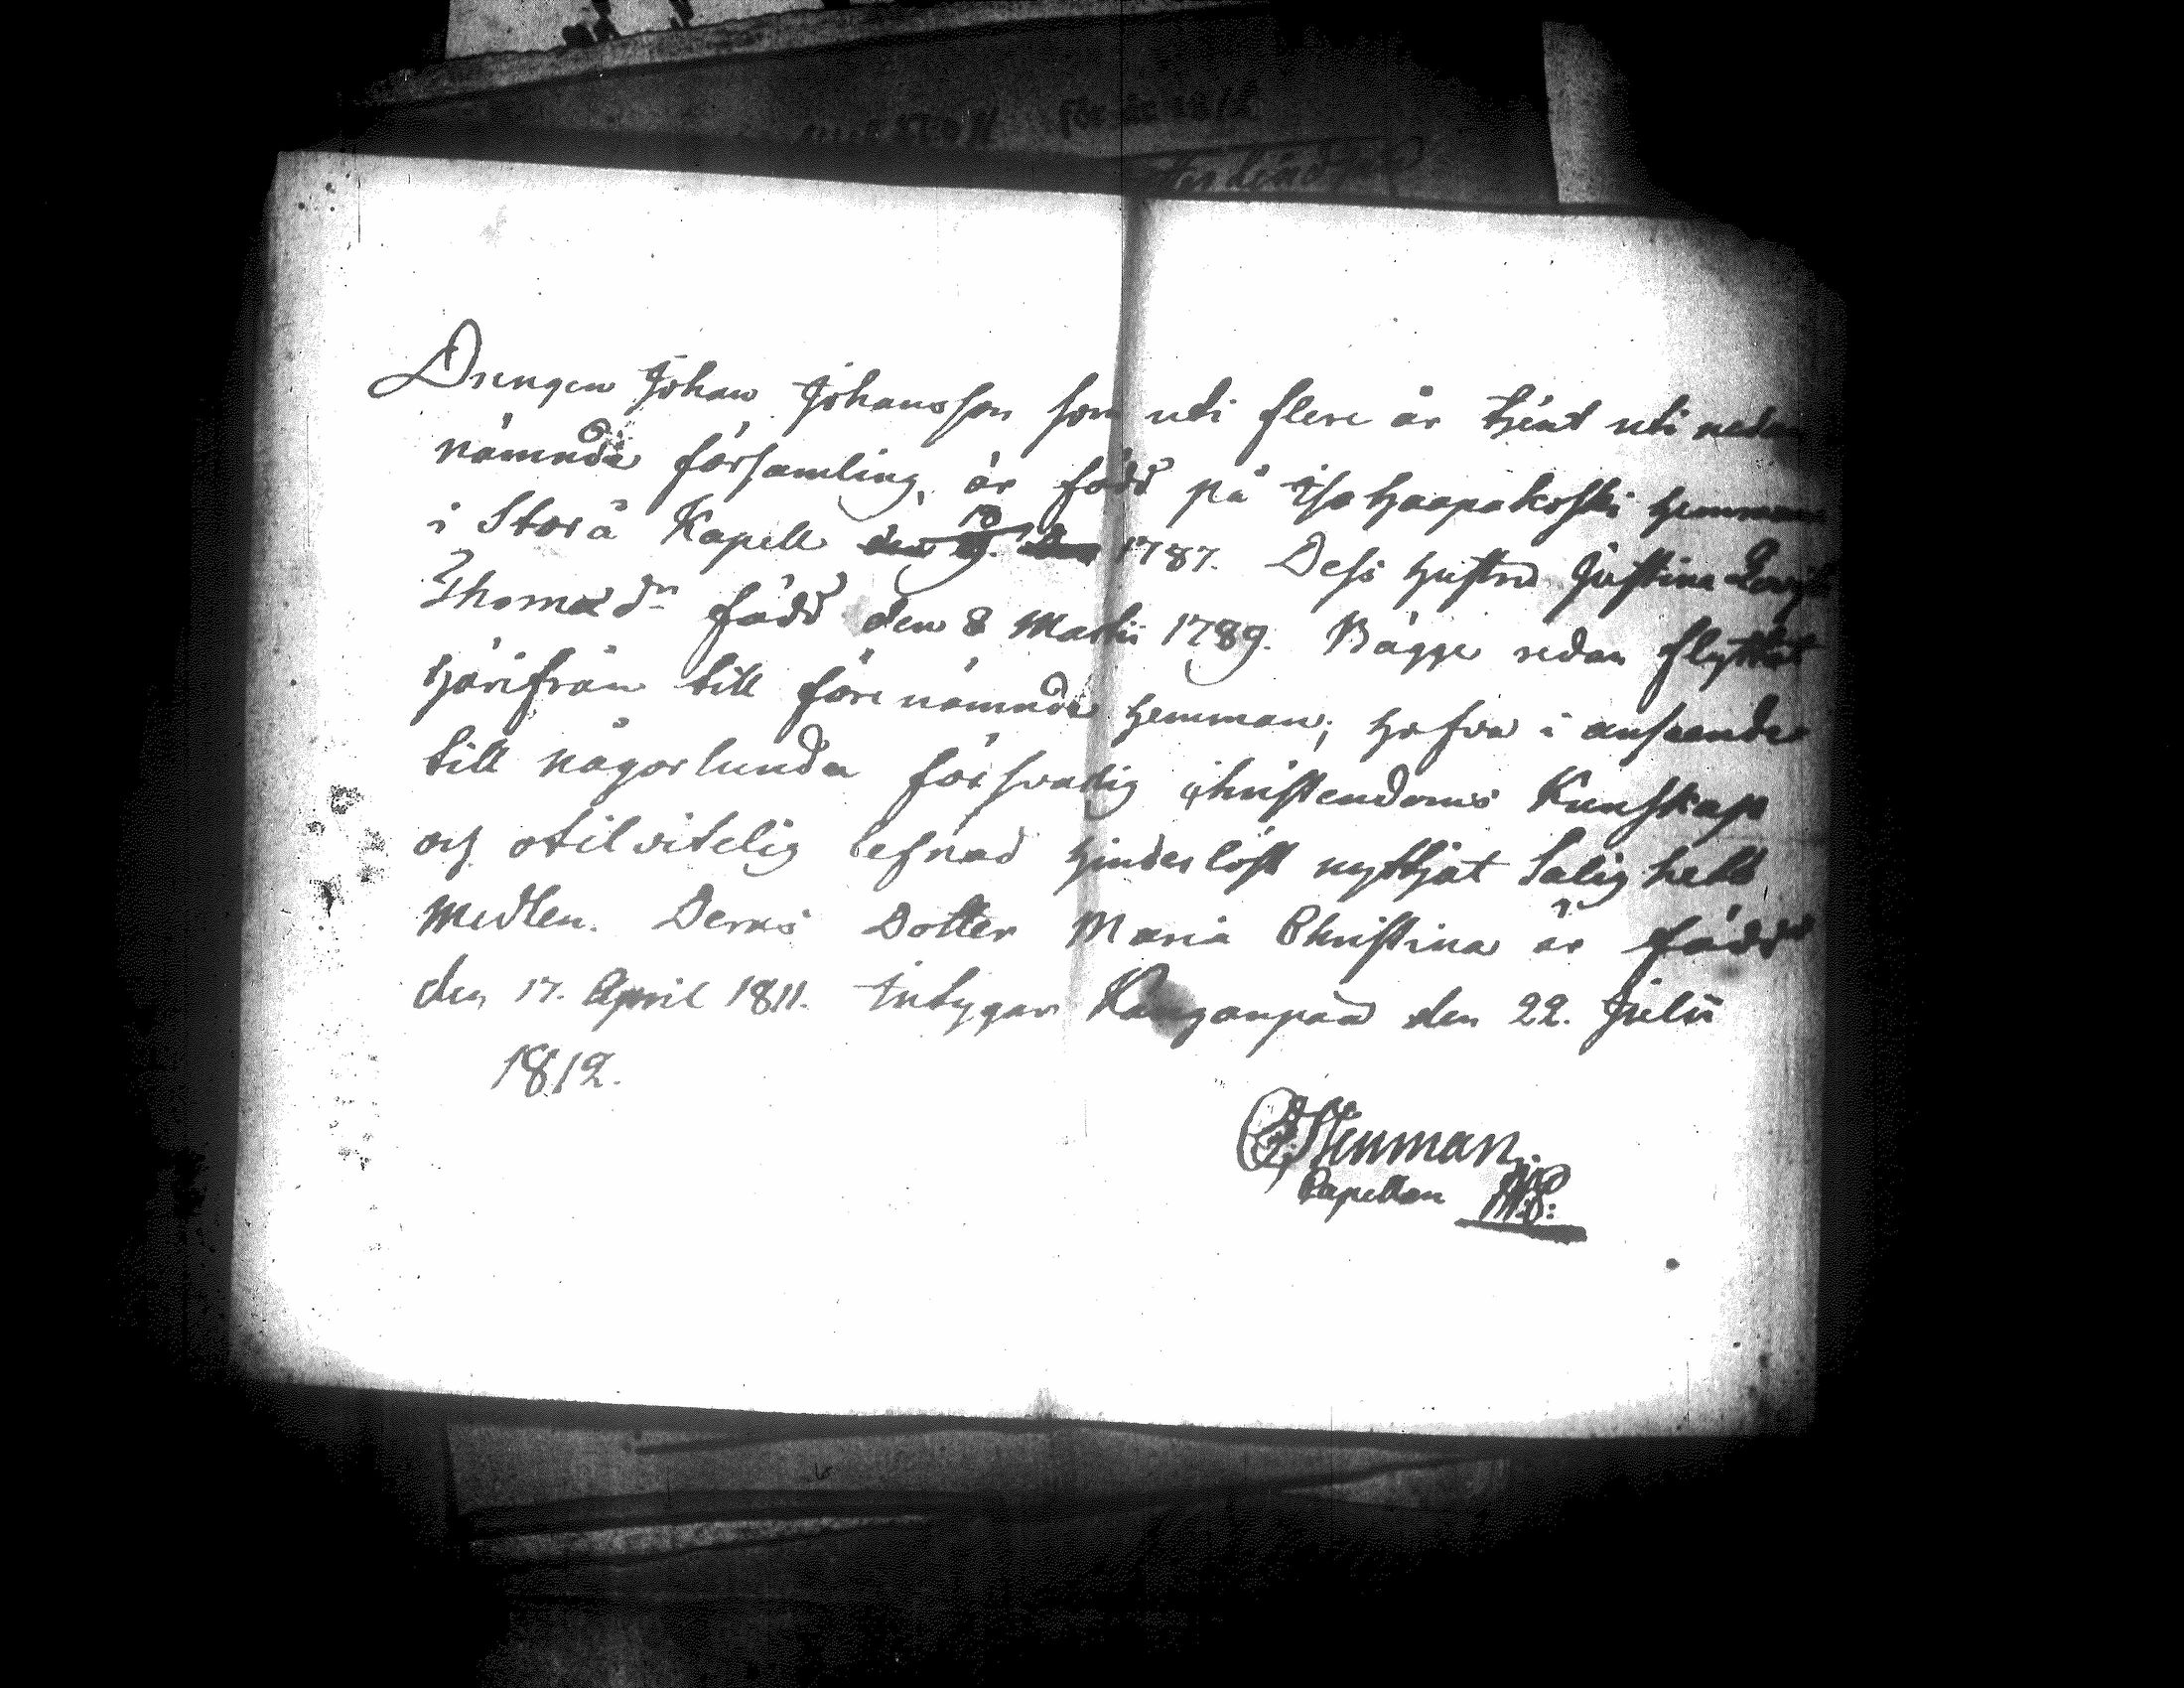 Drengen Johan Johansson som uti flere år tjent uti nedan
nämnda församling, är född på Isohaapakoski Hemman
i Storå Kapell den 1787. Dess Hustru Justina
Thomæ dr född den 8 Martii 1789. Bägge redan flyttat
härifrån till förenämnda Hemman, hafva i anseende
till någorlunda försvarlig christendoms Kunskap
och otilvitelig lefnad hinderlöst nyttjat Salighets
medlen. Deras Dotter Maria Christina är född
den 17. April 1811. Intygar Kanganpää den 22. Julii
1812.
Stenman
Capellan